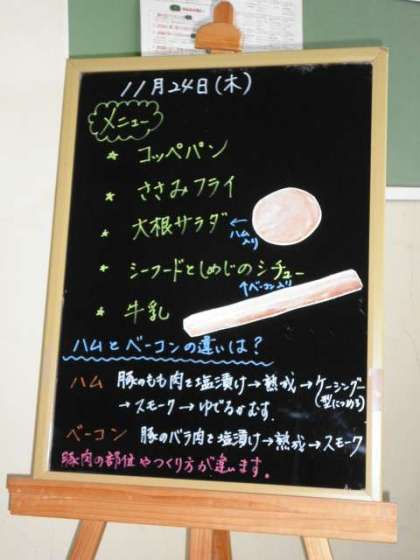 11月24日(木)
メニュー
★ コッペパン
★ ささみフライ
★ 大根サラダ
←
ハム
入り
★ シーフードとしめじのシチュー
↑ベーコン入り
★ 牛乳
ハムとベーコンの違いは?
ハム 豚のもも肉を塩漬け→熟成→ケーシング
(型につめる)
→スモーク→ゆでるかむす。
ベーコン 豚のバラ肉を塩漬け→熟成→スモーク
豚肉の部位やつくり方が違います。